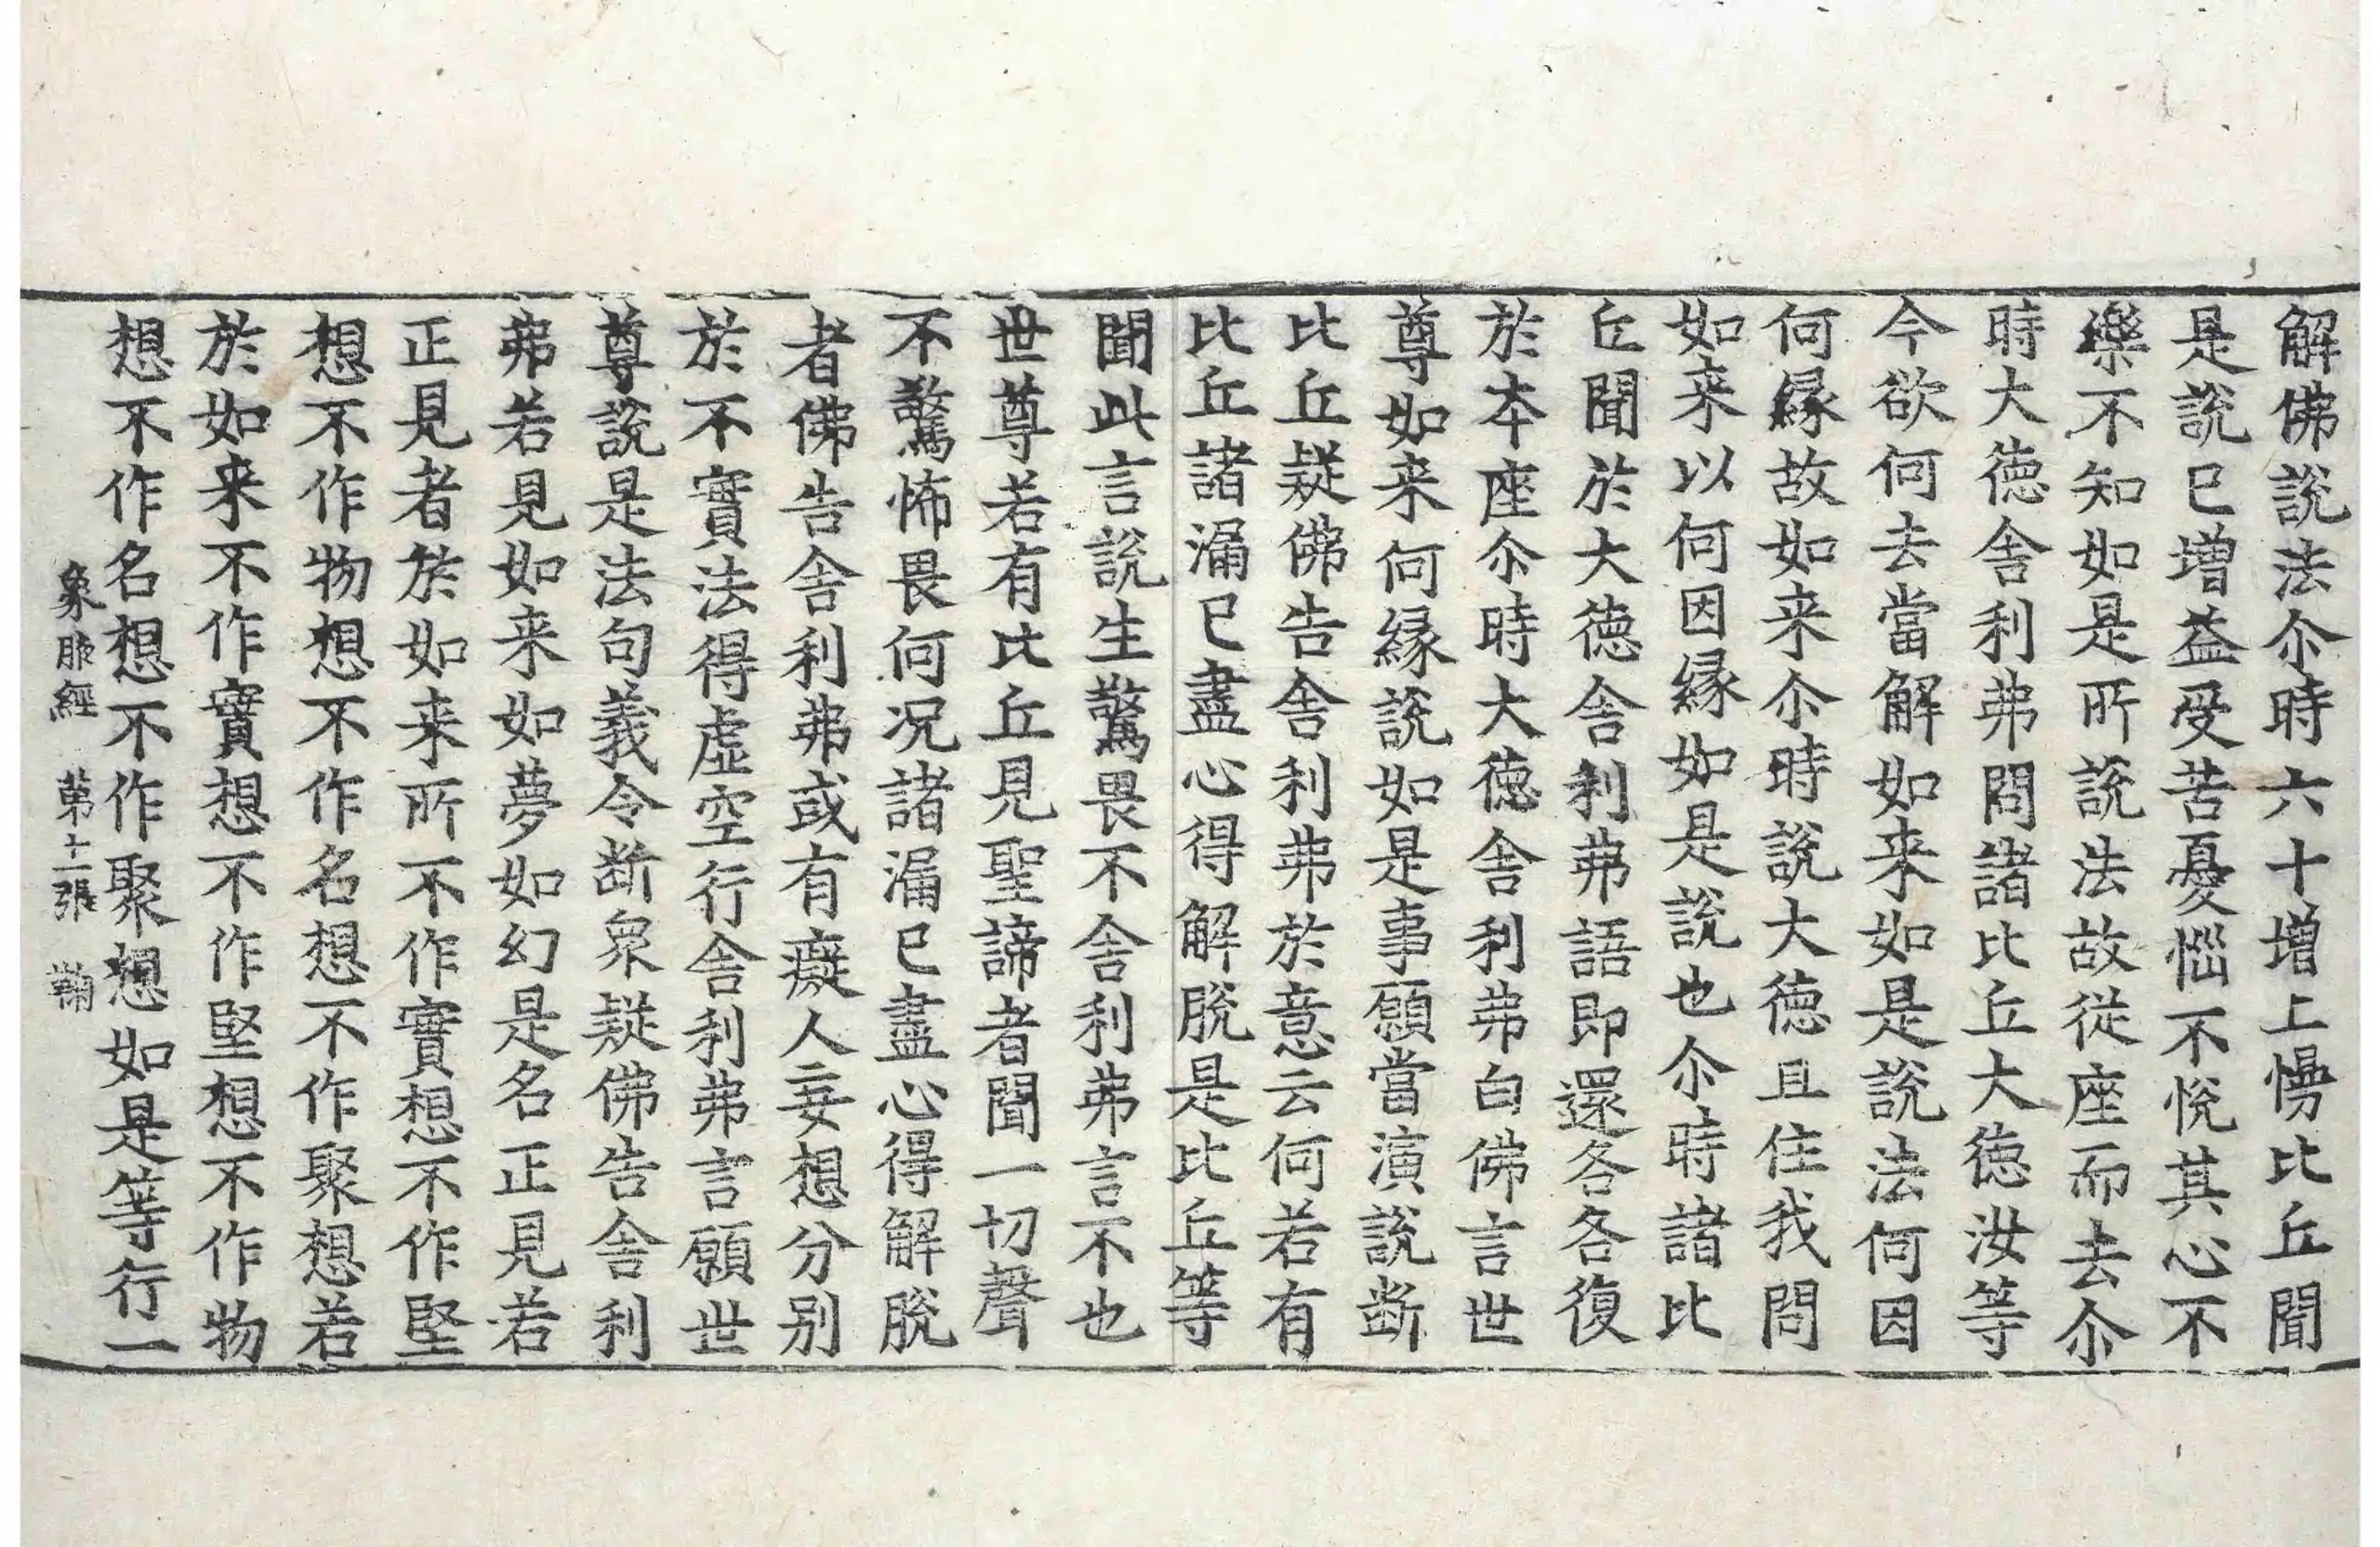 解佛説法尒時六十增上慢比丘聞
是説已増益受苦憂惱不悅其心不
樂不知如是所説法故從座而去尒
時大德舍利弗問諸比丘大德汝等
今欲何去當解如来如是説法何因
何縁故如来尒時説大德且住我問
如来以何因縁如是説也尒時諸比
丘聞於大德舍利弗語即還各各復
於本座尒時大德舍利弗白佛言世
尊如来何縁説如是事願當演説断
比丘疑佛告舍利弗於意云何若有
比丘諸漏已盡心得解脫是比丘等
聞此言説生驚畏不舍利弗言不也
世尊若有比丘見聖諦者聞一切聲
不驚怖畏何况諸漏已盡心得解脫
者佛告舍利弗或有癡人妄想分别
於不實法得虚空行舍利弗言願世
尊説是法句義令断衆疑佛告舍利
弗若見如来如夢如幻是名正見若
正見者於如来所不作實想不作堅
想不作物想不作名想不作聚想若
於如来不作實想不作堅想不作物
想不作名想不作聚想如是等行一
象腋經 苐十一張